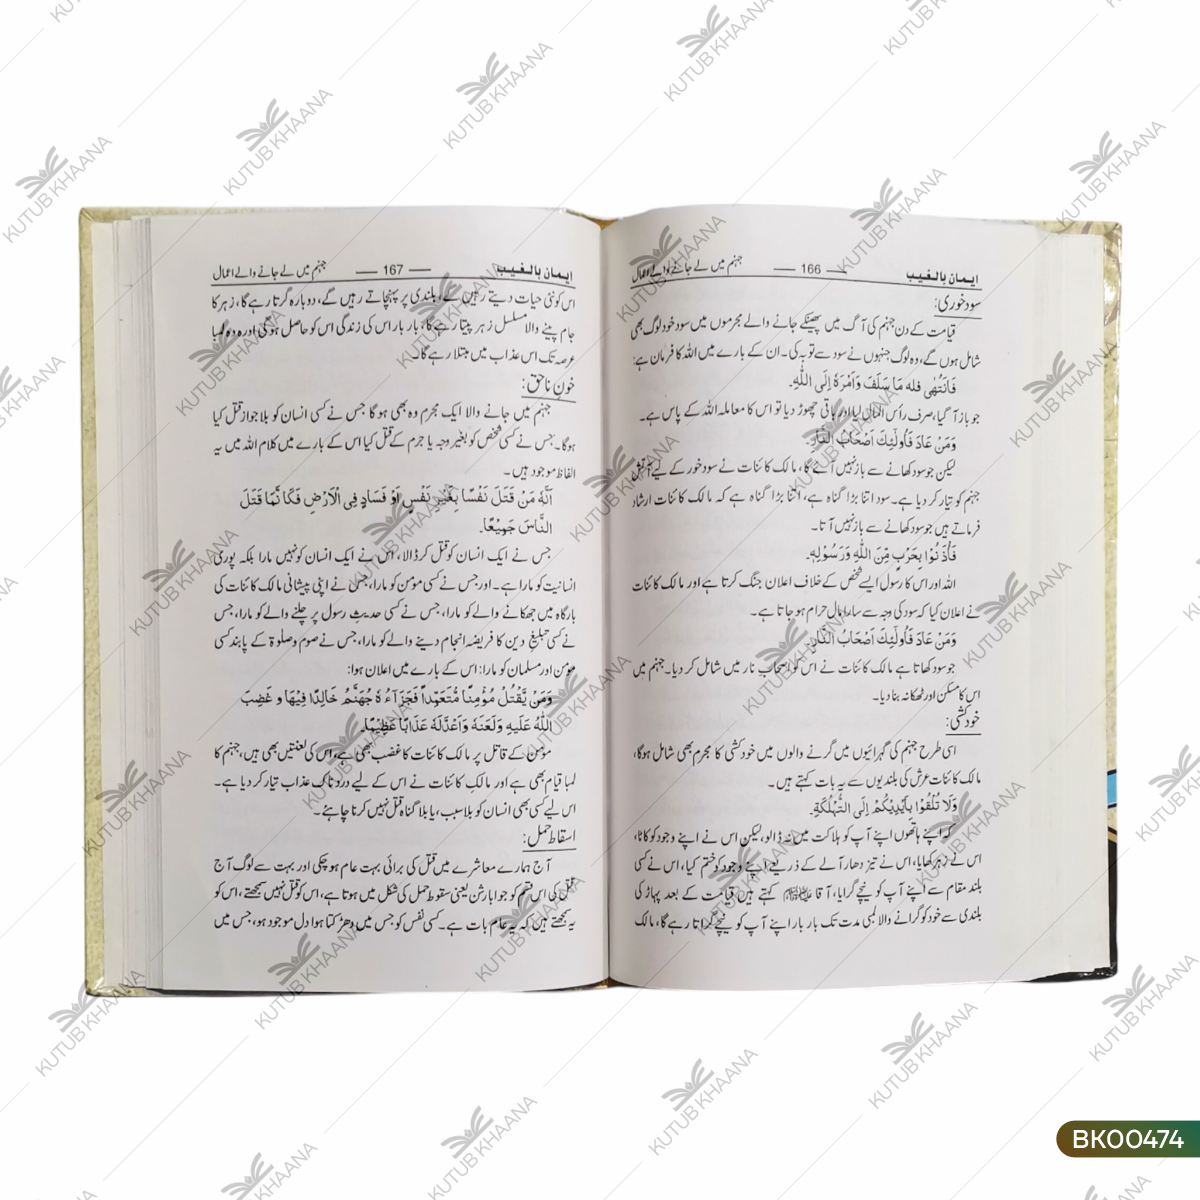 ایمان بالغیب — 166 — جہنم میں لے جانے والے اعمال
سود خوری:
قیامت کے دن جہنم کی آگ میں پھینکے جانے والے مجرموں میں سود خور لوگ بھی
شامل ہوں گے، وہ لوگ جنہوں نے سود سے توبہ کی۔ ان کے بارے میں اللہ کا فرمان ہے:
فَانْتَهٰى فله مَا سَلَفَ وَاَمْرَهٗ اِلَى اللّٰهِ۔
جو باز آ گیا، صرف رأس المال لیا اور باقی چھوڑ دیا تو اس کا معاملہ اللہ کے پاس ہے۔
وَمَنْ عَادَ فَاُولٰئِكَ اَصْحَابُ النَّارِ۔
لیکن جو سود کھانے سے باز نہیں آئے گا، مالک کائنات نے سود خور کے لیے آتش
جہنم کو تیار کر دیا ہے۔ سود اتنا بڑا گناہ ہے، اتنا بڑا گناہ ہے کہ مالک کائنات ارشاد
فرماتے ہیں جو سود کھانے سے باز نہیں آتا۔
فَأْذَنُوْا بِحَرْبٍ مِّنَ اللّٰهِ وَرَسُوْلِهٖ۔
اللہ اور اس کا رسول ایسے شخص کے خلاف اعلان جنگ کرتا ہے اور مالک کائنات
نے اعلان کیا کہ سود کی وجہ سے سارا مال حرام ہو جاتا ہے۔
وَمَنْ عَادَ فَاُولٰئِكَ اَصْحَابُ النَّارِ۔
جو سود کھاتا ہے مالک کائنات نے اس کو اصحاب نار میں شامل کر دیا۔ جہنم میں
اس کا مسکن اور ٹھکانہ بنا دیا۔
خودکشی:
اسی طرح جہنم کی گہرائیوں میں گرنے والوں میں خودکشی کا مجرم بھی شامل ہوگا،
مالک کائنات عرش کی بلندیوں سے یہ بات کہتے ہیں۔
وَلَا تُلْقُوْا بِاَيْدِيْكُمْ اِلَى التَّهْلُكَةِ۔
کہ اپنے ہاتھوں اپنے آپ کو ہلاکت میں نہ ڈالو، لیکن اس نے اپنے وجود کو کاٹا،
اس نے زہر کھایا، اس نے تیز دھار آلے کے ذریعے اپنے وجود کو ختم کیا، اس نے کسی
بلند مقام سے اپنے آپ کو نیچے گرایا، آقا ﷺ کہتے ہیں قیامت کے بعد پہاڑ کی
بلندی سے خود کو گرانے والا لمبی مدت تک بار بار اپنے آپ کو نیچے گراتا رہے گا، مالک
ایمان بالغیب — 167 — جہنم میں لے جانے والے اعمال
اس کو نئی حیات دیتے رہیں گے، بلندی پر پہنچاتے رہیں گے، دوبارہ گرتا رہے گا، زہر کا
جام پینے والا مسلسل زہر پیتا رہے گا، بار بار اس کی زندگی اس کو حاصل ہوگی اور وہ لمبا
عرصہ تک اس عذاب میں مبتلا رہے گا۔
خونِ ناحق:
جہنم میں جانے والا ایک مجرم وہ بھی ہوگا جس نے کسی انسان کو بلا جواز قتل کیا
ہوگا۔ جس نے کسی شخص کو بغیر وجہ یا جرم کے قتل کیا اس کے بارے میں کلام اللہ میں یہ
الفاظ موجود ہیں۔
اَنَّهٗ مَنْ قَتَلَ نَفْسًا بِغَيْرِ نَفْسٍ اَوْ فَسَادٍ فِى الْاَرْضِ فَكَاَنَّمَا قَتَلَ
النَّاسَ جَمِيْعًا۔
جس نے ایک انسان کو قتل کر ڈالا، اس نے ایک انسان کو نہیں مارا بلکہ پوری
انسانیت کو مارا ہے۔ اور جس نے کسی مؤمن کو مارا، جس نے اپنی پیشانی مالک کائنات کی
بارگاہ میں جھکانے والے کو مارا، جس نے کسی حدیثِ رسول پر چلنے والے کو مارا، جس
نے کسی تبلیغِ دین کا فریضہ انجام دینے والے کو مارا، جس نے صوم و صلوۃ کے پابند کسی
مؤمن اور مسلمان کو مارا: اس کے بارے میں اعلان ہوا:
وَمَنْ يَّقْتُلْ مُؤْمِنًا مُّتَعَمِّداً فَجَزَآءُهٗ جَهَنَّمُ خَالِدًا فِيْهَا و غَضِبَ
اللّٰهُ عَلَيْهِ وَلَعَنَهٗ وَاَعَدَّلَهٗ عَذَابًا عَظِيْمًا۔
مؤمن کے قاتل پر مالک کائنات کا غضب بھی ہے، اس کی لعنتیں بھی ہیں، جہنم کا
لمبا قیام بھی ہے اور مالکِ کائنات نے اس کے لیے دردناک عذاب تیار کر دیا ہے۔
اس لیے کسی بھی انسان کو بلا سبب، یا بلا گناہ قتل نہیں کرنا چاہئے۔
اسقاط حمل:
آج ہمارے معاشرے میں قتل کی برائی بہت عام ہو چکی اور بہت سے لوگ آج
قتل کی اس قسم کو جو ابارشن یعنی سقوط حمل کی شکل میں ہوتا ہے، اس کو قتل نہیں سمجھتے، اس کو
یہ سمجھتے ہیں کہ یہ عام بات ہے۔ کسی نفس کو جس میں دھڑکتا ہوا دل موجود ہو، جس میں
KUTUB KHAANA
BK00474